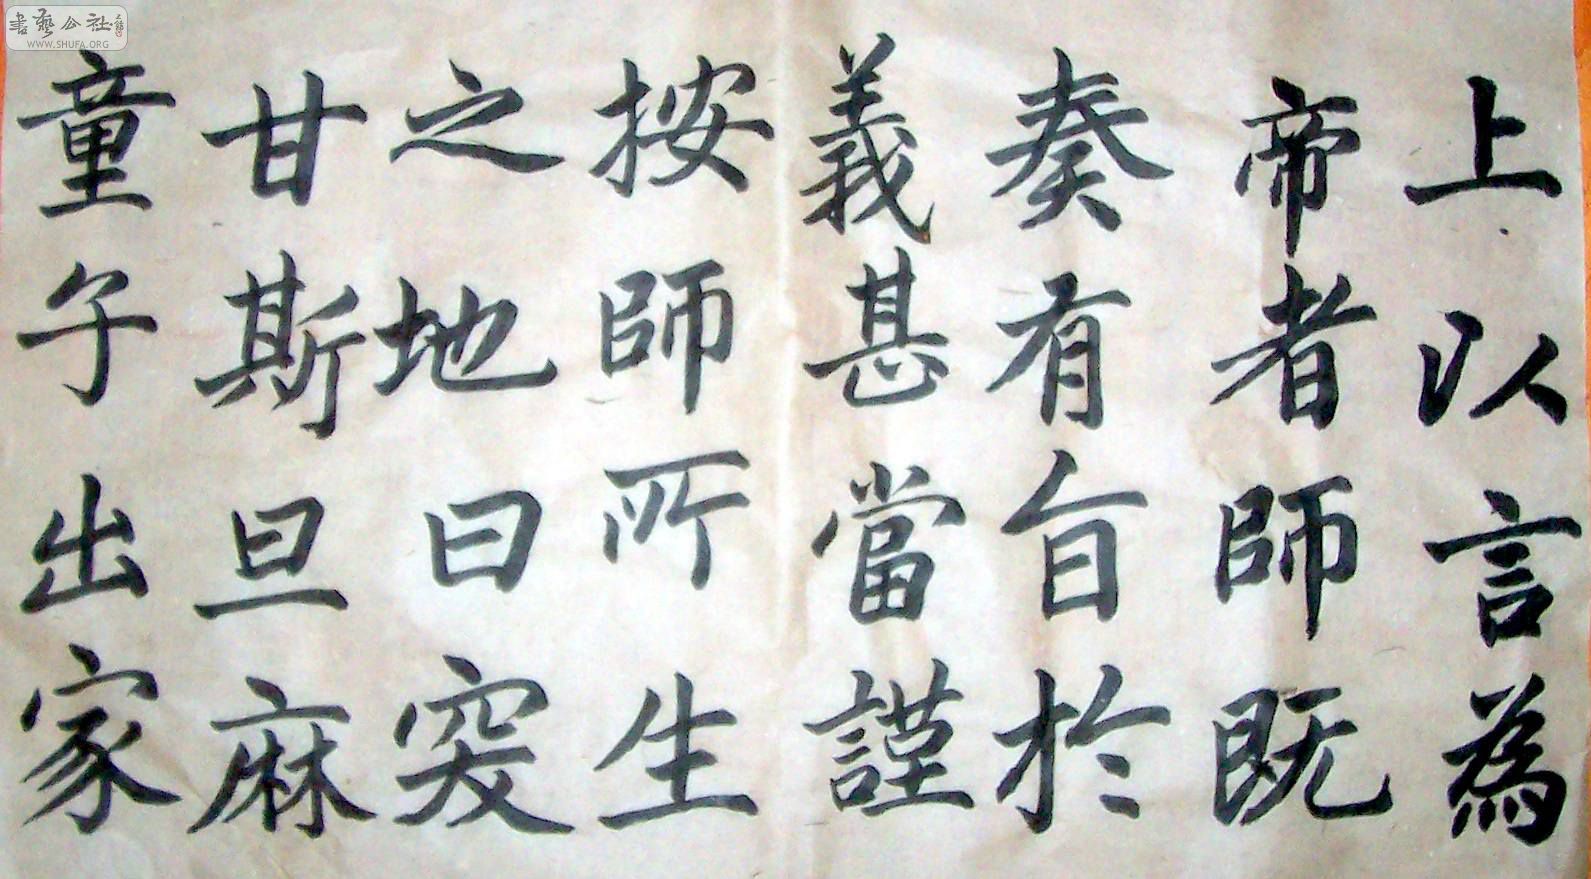 上以言為
帝者師既
奏有旨於
義甚當謹
按師所生
之地曰突
甘斯旦麻
童子出家
書藝公社
WWW.SHUFA.ORG